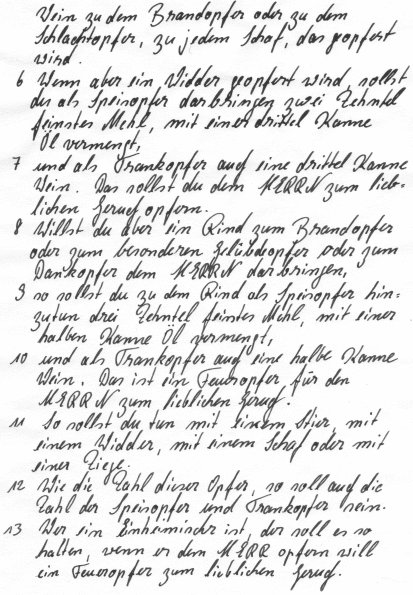 Wein zu dem Brandopfer oder zu dem
Schlachtopfer, zu jedem Schaf, das geopfert
wird.
6 Wenn aber ein Widder geopfert wird, sollst
du als Speisopfer darbringen zwei Zehntel
feinstes Mehl, mit einer drittel Kanne
Öl vermengt,
7 und als Trankopfer auch eine drittel Kanne
Wein. Das sollst du dem HERRN zum lieb-
lichen Geruch opfern.
8 Willst du aber ein Rind zum Brandopfer
oder zum besonderen Gelübdeopfer oder zum
Dankopfer dem HERRN darbringen,
9 so sollst du zu dem Rind als Speisopfer hin-
zutun drei Zehntel feinstes Mehl, mit einer
halben Kanne Öl vermengt,
10 und als Trankopfer auch eine halbe Kanne
Wein. Das ist ein Feueropfer für den
HERRN zum lieblichen Geruch.
11 So sollst du tun mit einem Stier, mit
einem Widder, mit einem Schaf oder mit
einer Ziege.
12 Wie die Zahl dieser Opfer, so soll auch die
Zahl der Speisopfer und Trankopfer sein.
13 Wer ein Einheimischer ist, der soll es so
halten, wenn er dem HERR opfern will
ein Feueropfer zum lieblichen Geruch.